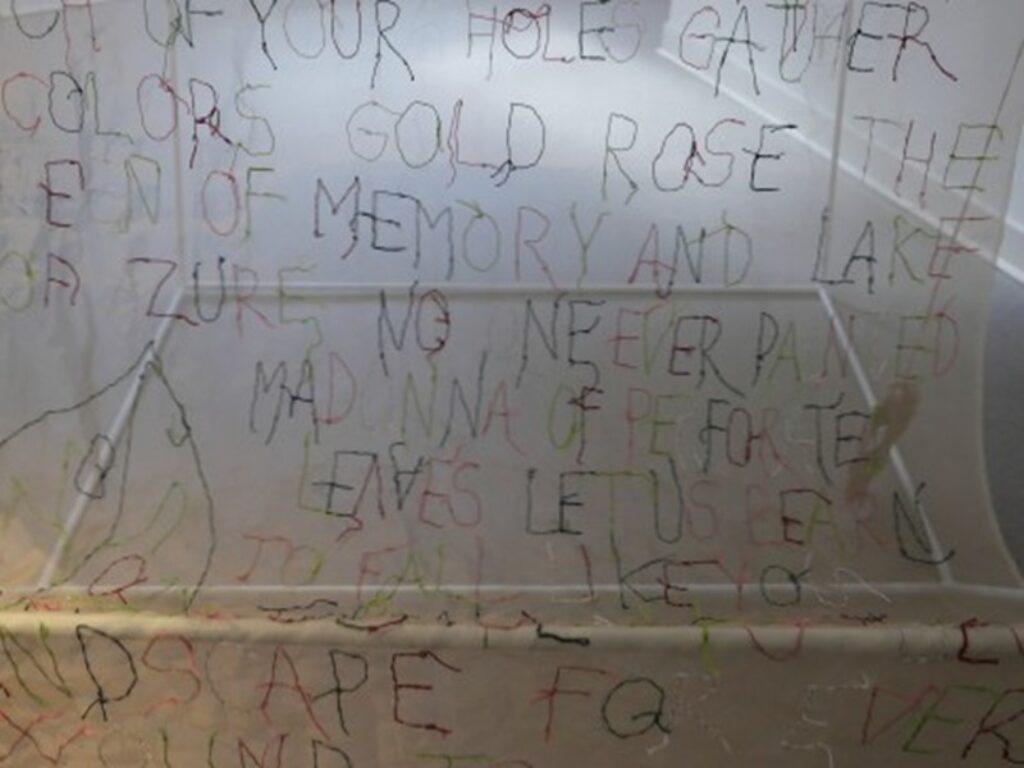 OF YOUR HOLES GATHER
COLORS GOLD ROSE THE
EEN OF MEMORY AND LAKE
OF A ZURE NO NE EVER PAINTED
MADONNA OF PE FOR TED
LEAVES LET US LEARN
TO FALL LIKE YOU
NDSCAPE FOR EVER